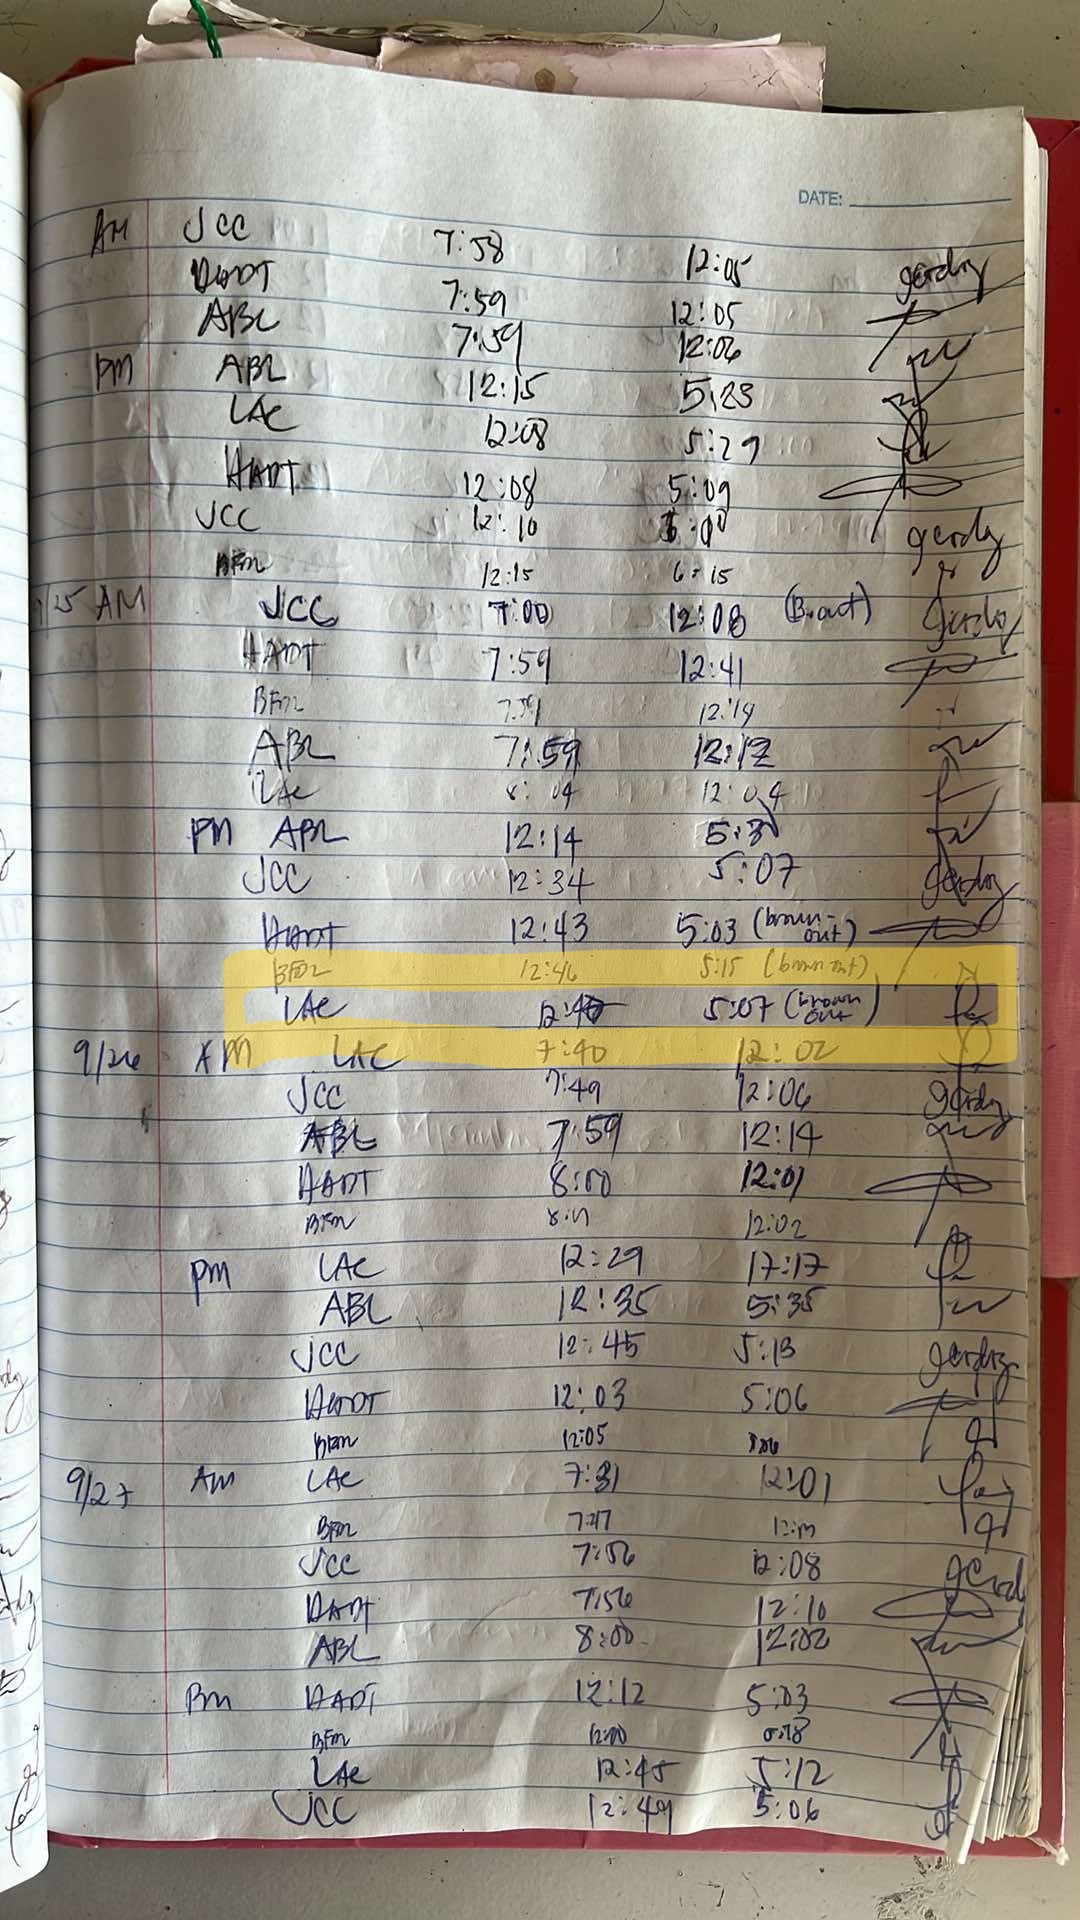 DATE:
AM JCC 7:58 12:05 gcrdz
HADT 7:59 12:05
ABL 7:59 12:06
PM ABL 12:15 5:23
LAC 12:08 5:29
HADT 12:08 5:09
JCC 12:10 gcrdz
BFM 12:15 6:15
/25 AM JCC 7:00 12:08 (B.out) gcrdz
HADT 7:59 12:41
BFM 12:14
ABL 7:59 12:12
LAC 8:04 12:04
PM ABL 12:14
JCC 12:34 5:07 gcrdz
HADT 12:43 5:03 (brown-out)
BFM 12:46 5:15 (brown out)
LAC 5:07 (brown out)
9/26 AM LAC 7:40 12:02
JCC 7:49 12:06 gcrdz
ABL 7:59 12:14
HADT 8:00 12:01
BFM 12:02
PM LAC 12:29 17:17
ABL 12:35 5:35
JCC 12:45 5:13 gcrdz
HADT 12:03 5:06
BFM 12:05
9/27 AM LAC 7:31 12:01
BFM 7:47
JCC 7:56 12:08 gcrdz
HADT 7:56 12:10
ABL 8:00 12:02
PM HADT 12:12 5:03
BFM
LAC 12:45 5:12
JCC 12:49 5:06